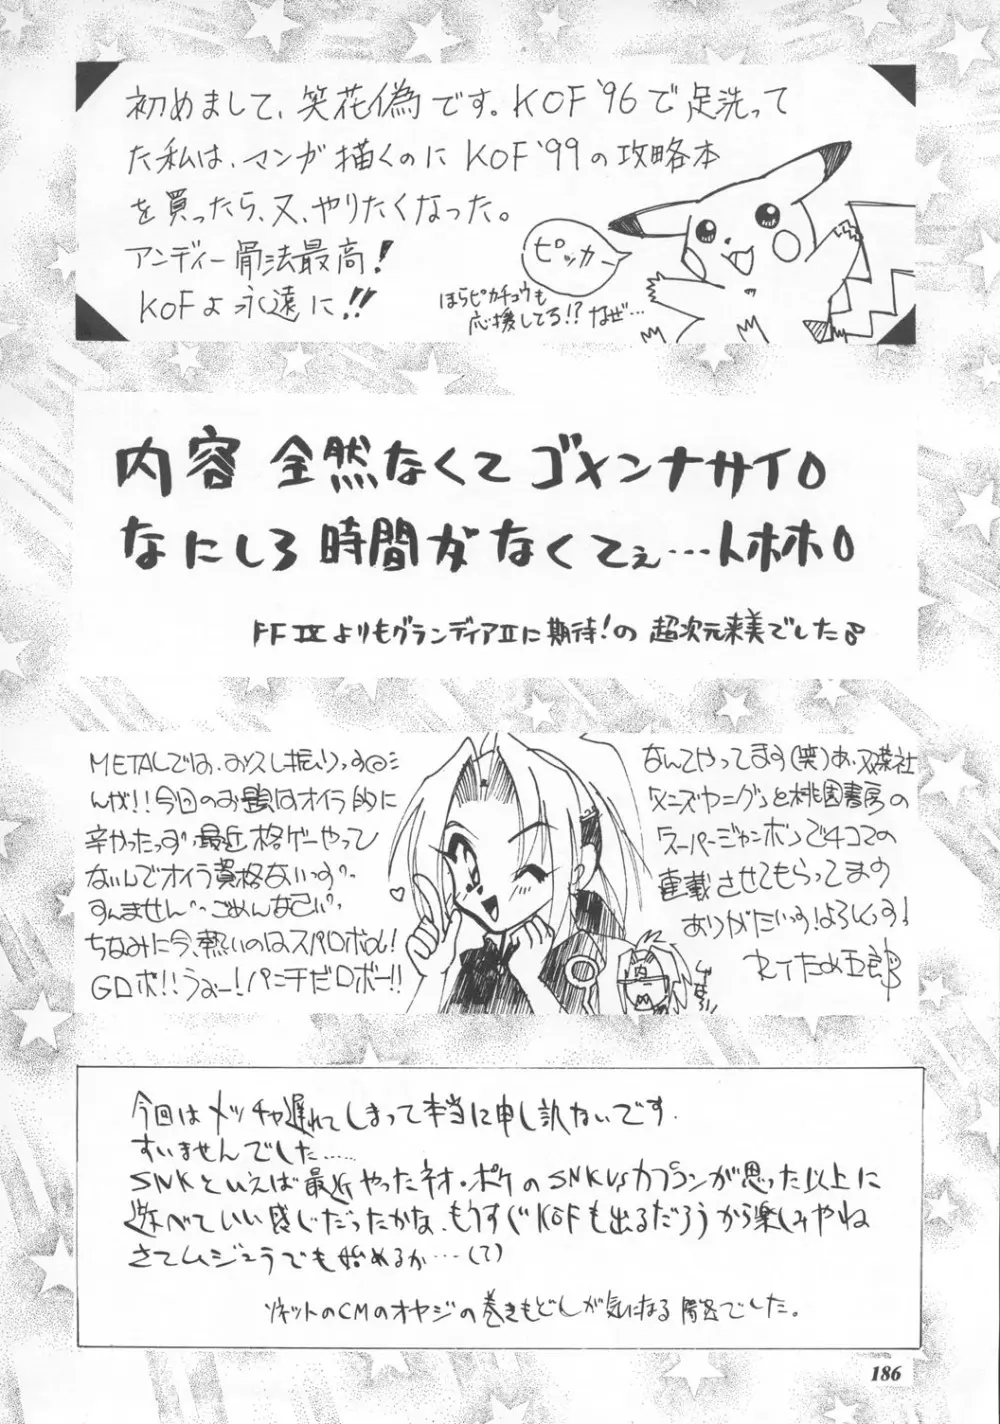 初めまして、笑花偽です。KOF'96で足洗って
た私は、マンガ描くのにKOF'99の攻略本
を買ったら、又、やりたくなった。
アンディー骨法最高!
KOFよ永遠に!!
ピッカー
ほらピカチュウも
応援してる!?なぜ…
内容 全然なくてゴメンナサイ。
なにしろ時間がなくてぇ…トホホ。
FFⅨよりもグランディアⅡに期待!の 超次元来美でした
METALでは、お久し振りっす
んが!!今回のお題はオイラ的に
辛かったっす 最近格ゲーやって
ないんでオイラ資格ないっす
すんません ごめんなさい
ちなみに今、熱いのはスパロボα!
Gロボ!!うぉー!パンチだロボー!!
なんてやってます(笑)あ、双葉社
メンズヤングと桃園書房の
スーパージャンボンで4コマの
連載させてもらってます
ありがたいっす!よろしくっす!
今回はメッチャ遅れてしまって本当に申し訳ないです.
すいませんでした……
SNKといえば最近やったネオ・ポケのSNKVSカプコンが思った以上に
遊べていい感じだったかな、もうすぐKOFも出るだろうから楽しみやね
さてムジュラでも始めるか…(て)
ソネットのCMのオヤジの巻きもどしが気になる でした。
186